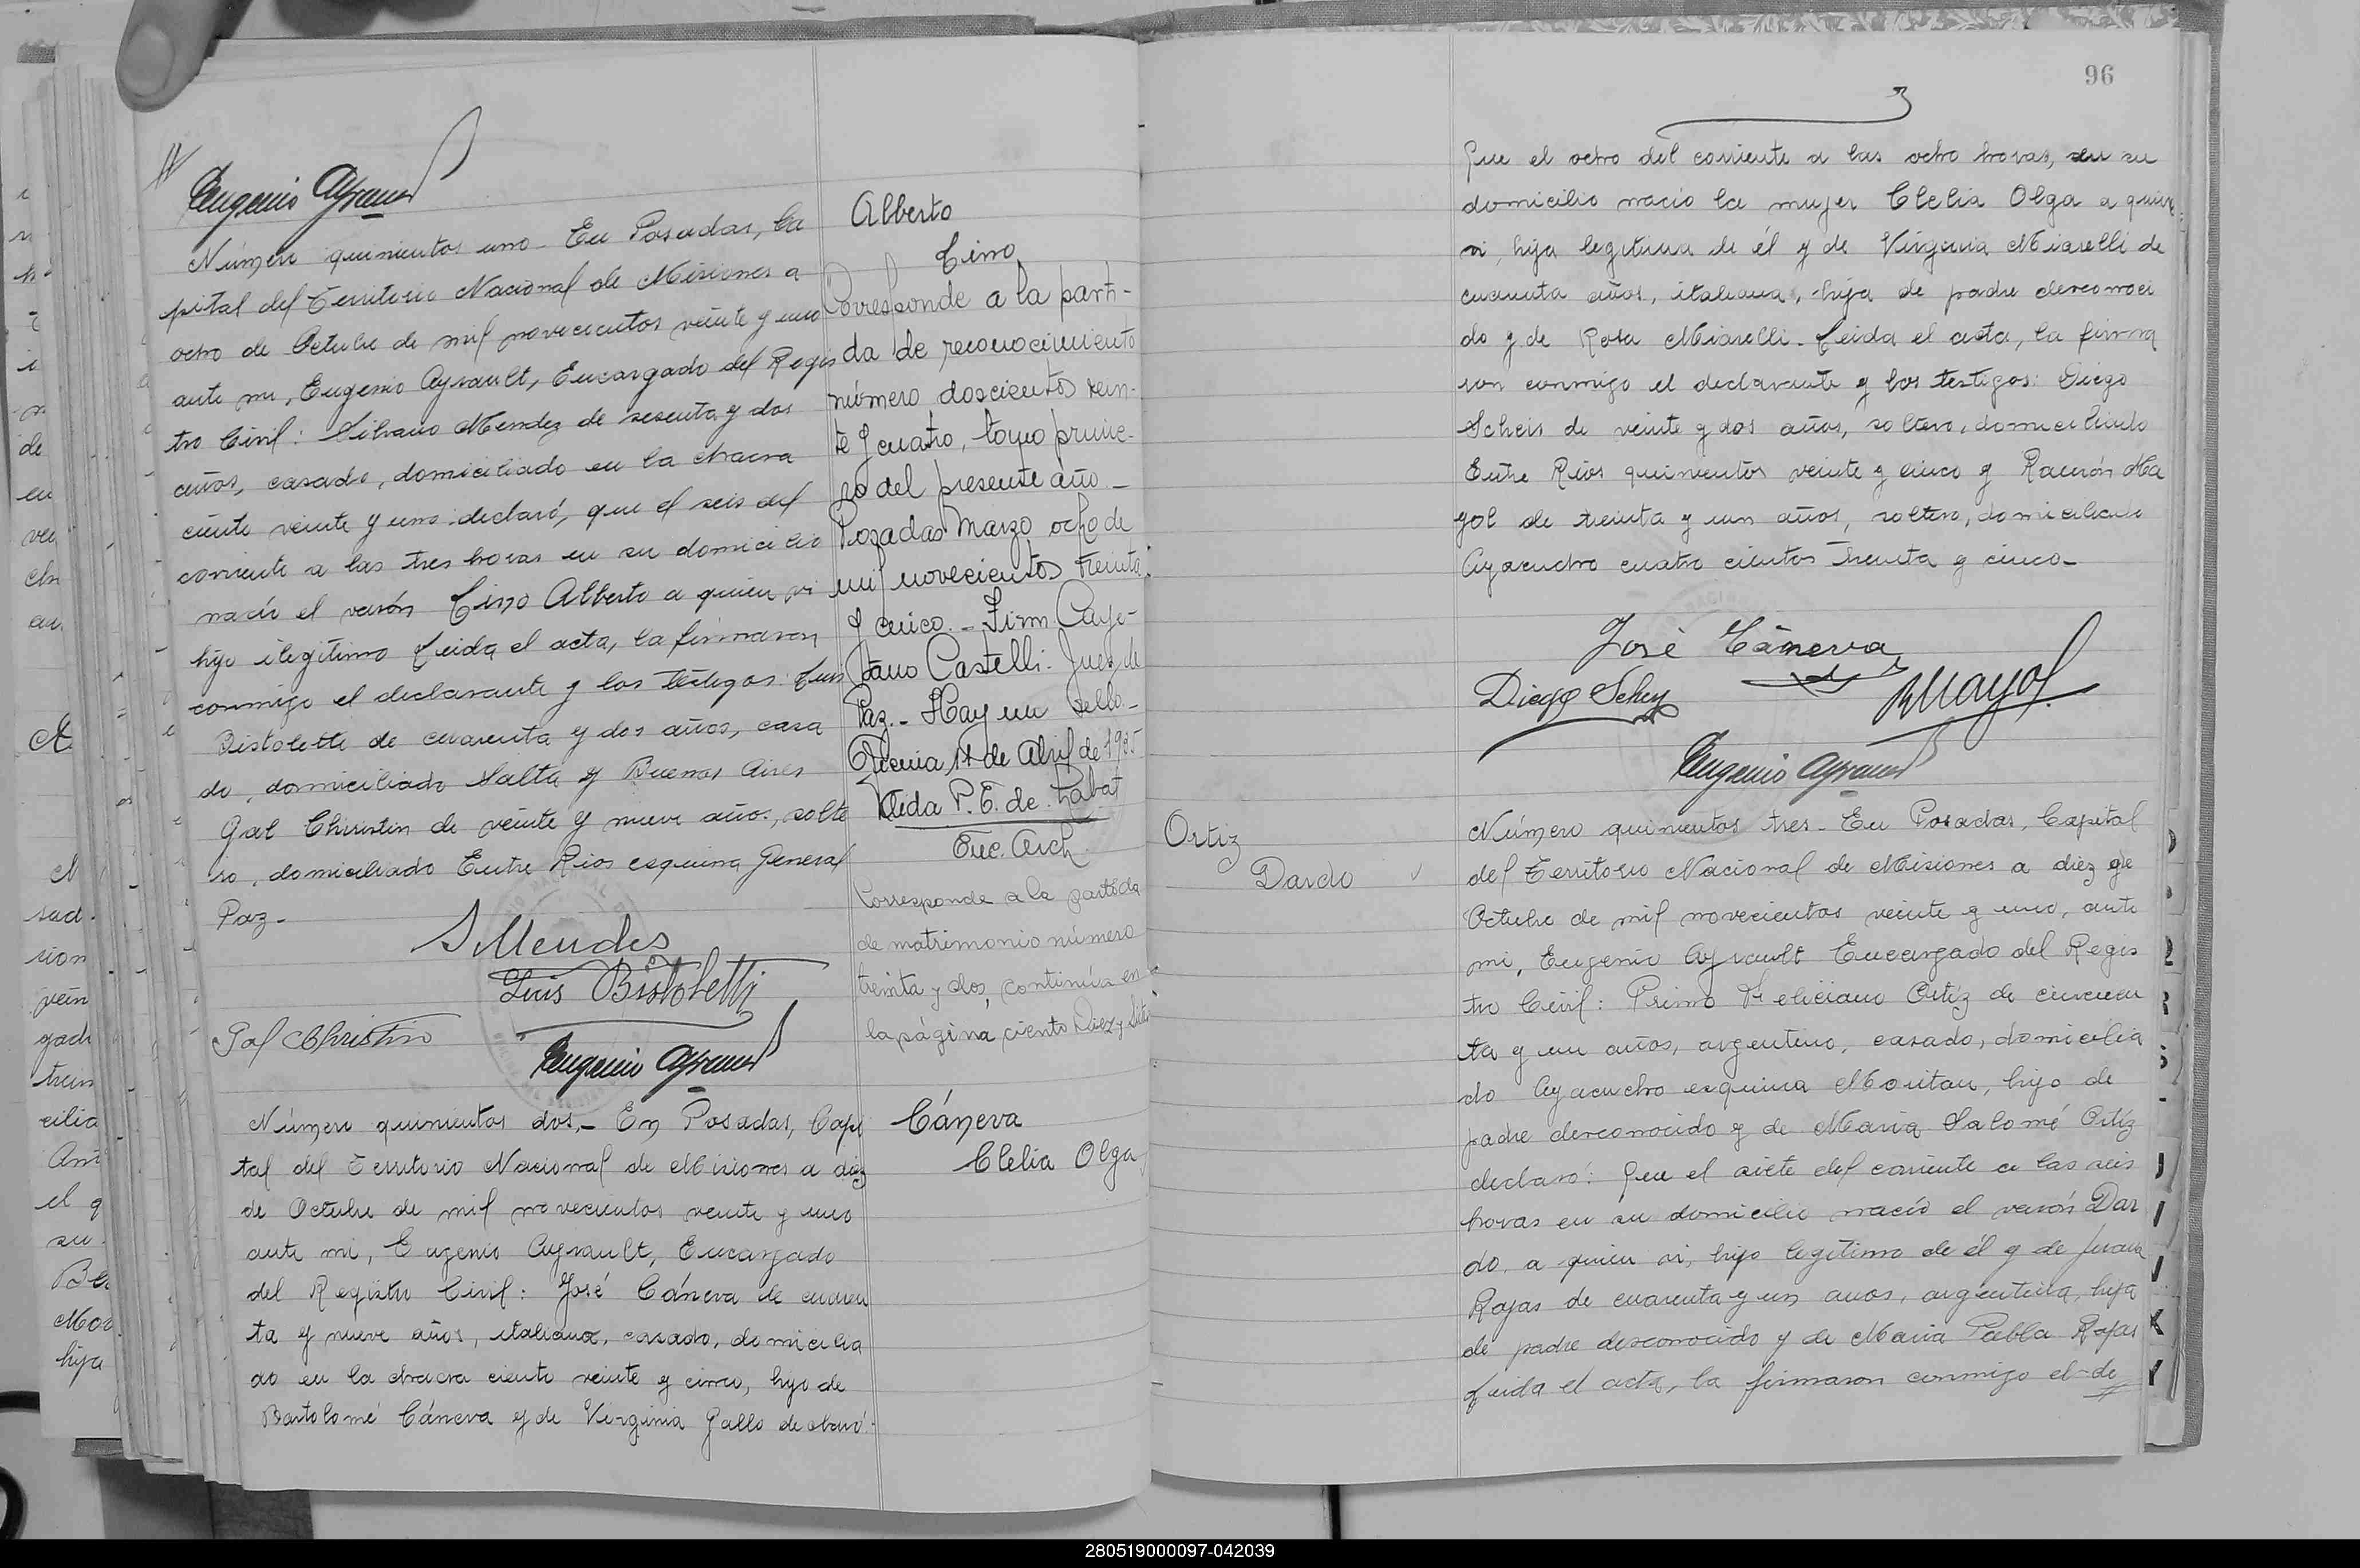 Eugenio Ayrault
Número quinientos uno - En Posadas, Ca
pital del Territorio Nacional de Misiones a
ocho de Octubre de mil novecientos veinte y uno
ante mi, Eugenio Ayrault, Encargado del Regis
tro Civil: Silvano Mendez de sesenta y dos
años, casado, domiciliado en la chacra
ciento veinte y uno declaró, que el seis del
corriente a las tres horas en su domicilio
nació el varón Cirro Alberto a quien vi
hijo ilegitimo Leida el acta, la firmaron
conmigo el declarante y los testigos: Luis
Bistoletti de cuarenta y dos años, casa
do, domiciliado Salta y Buenos Aires
Gal Christin de veinte y nueve años, solte
ro, domiciliado Entre Rios esquina General
Paz -
S Mendes
Luis Bistoletti
Gal Christin
Eugenio Ayrault
Alberto
Cirro
Corresponde a la parti-
da de reconocimiento
número doscientos vein-
te y cuatro, tomo prime-
ro del presente año -
Posadas Marzo ocho de
mil novecientos treinta
y cinco. - Firm. Caye-
tano Castelli - Juez de
Paz. - Hay un sello. -
14 de Abril de 1935
P. E. de Labat
Enc. Arch
Corresponde a la partida
de matrimonio número
treinta y dos, continúa en
la página, ciento Diez y Siete
Número quinientos dos, - En Posadas, Capi
tal del Territorio Nacional de Misiones a diez
de Octubre de mil novecientos veinte y uno
ante mi, Eugenio Ayrault, Encargado
del Registro Civil: José Cáneva de cuaren
ta y nueve años, italiano, casado, domicilia
do en la chacra ciento veinte y cinco, hijo de
Bartolomé Cáneva y de Virginia Gallo declaró:
Cáneva
Clelia Olga
96
Que el ocho del corriente a las ocho horas, en su
domicilio nació la mujer Clelia Olga a quien
vi, hija legitima de él y de Virginia Miarelli de
cuarenta años, italiana, hija de padre desconoci
do y de Rosa Miarelli. Leida el acta, la firma
ron conmigo el declarante y los testigos: Diego
Scheis de veinte y dos años, soltero, domiciliado
Entre Rios quinientos veinte y cinco y Ramón Ma
yol de treinta y un años, soltero, domiciliado
Ayacucho cuatro cientos treinta y cinco -
José Cáneva
Diego Schey
R Mayol
Eugenio Ayrault
Ortiz
Dardo
Número quinientos tres - En Posadas, Capital
del Territorio Nacional de Misiones a diez de
Octubre de mil novecientos veinte y uno, ante
mi, Eugenio Ayrault Encargado del Regis
tro Civil: Primo Feliciano Ortiz de cincuen
ta y un años, argentino, casado, domicilia
do Ayacucho esquina Moritan, hijo de
padre desconocido y de Maria Salomé Ortiz
declaró: Que el siete del corriente a las seis
horas en su domicilio nació el varón Dar
do. a quien vi, hijo legitimo de él y de Juana
Rojas de cuarenta y un anos, argentina, hija
de padre desconocido y de Maria Pabla Rojas
Leida el acta, la firmaron conmigo el de
280519000097-042039